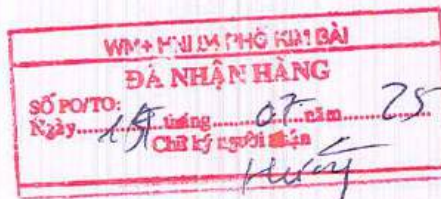 WM+ HNI 154 PHỐ KIM BÀI
ĐÃ NHẬN HÀNG
SỐ PO/TO:
Ngày 15 tháng 07 năm 25
Chữ ký người nhận
Hường